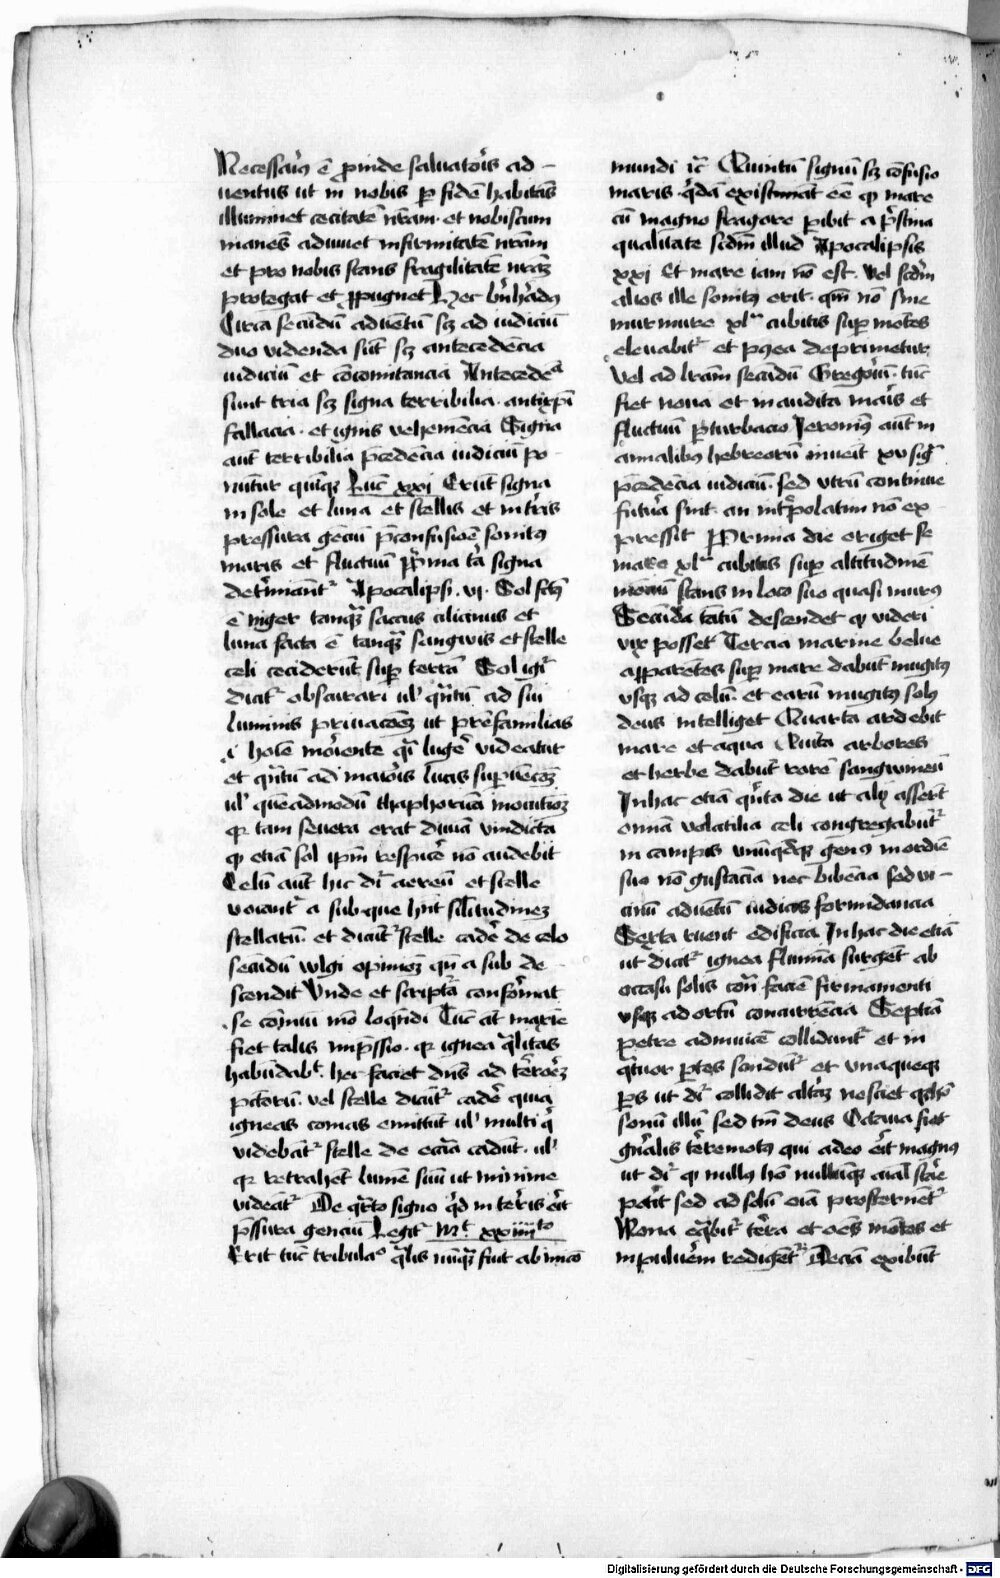 Necessari9 ē proinde saluatoris ad-
uentus ut in nobis per fidē habitās
illuminet cecitatē nr̄am · et nobiscum
manēs adiuuet infirmitatē nr̄am
et pro nobis stans fragilitatē nr̄aꝫ
protegat et ꝓpugnet Hec bern̄hard9
Circa secūdū aduētū sꝫ ad iudiciū
duo videnda sūt sꝫ antecedēcia
iudiciū et cōcomitancia Antecedēa
sunt tria sꝫ signa terribilia · antixp̄i
fallacia · et ignis vehemēcia Signa
aūt terribilia p̄cedēcia iudiciū po-
nūtur quīqꝫ Luc̄ xxi Erūt signa
in sole et luna et stellis et in tr̄is
pressura gēciū p̄ confusiōē sonit9
maris et fluctuū Prīma tr̄a signa
det̄minātr Apocalipsi · vi · Sol fct̄9
ē niger tanqꝫ saccus cilicinus et
luna facta ē tanqꝫ sangwis et stelle
celi ceciderūt sup terrā Sol igr̄
dicitr obscurari ul' qntū ad sui
luminis priuacōeꝫ ut pr̄efamilias
.i. hoīe moriente qi luge' videatur
et qntū ad maioris lucis supuēcōꝫ
ul' queadmodū thaphoricā mocōꝫ
qr tam seuera erat diuīa vindicta
qꝫ etiā sol ipm̄ respice' nō audebit
Celū aūt hic dr̄ aereū et stelle
vocantr a sub-que hn̄t sil'itudinez
stellarū · et dicūtr stelle cade' de celo
secūdū wlgi opinioꝫ qn̄ a sub de
scendit Vnde et scriptura conformat
se cōmuni mō loqn̄di Tūc aūt maxīe
fiet talis īmp̄ssio · qr ignea qlitas
habūdabt · hec faciet dn̄s ad terrorēꝫ
pctōrū · vel stelle dicūtr cade' quia
igneas comas emittūt ul' multi qi
videbātr stelle de ecc̄ia cadūt · ul'
qr retrahēt lumē suū ut minime
videātr De qrto signo qd in terris erit
p̄ssura genciū Legitr Mt xxiiiito
Erit tūc tribulao qlis nūqꝫ fuit ab inico
mundi ic̄ Quintū signū sꝫ cōfusio
maris · qdā existimāt eē qꝫ mare
cū magno fragore pibit a p̄stina
qualitate scdm̄ illud Apocalipsis
xxi Et mare iam nō est · Vel scdm̄
alios ille sonit9 erit · qm̄ nō sine
murmure xl cubitis sup mōtes
eleuabitr et p9ea deprimetur
Vel ad lr̄am secūdū Gregoriū · tūc
fiet noua et inaudita maris et
fluctuū p̄turbacio Jeronim9 aūt in
annalibus hebreorū inueīt xv siḡ
p̄cedēcia iudiciū · sed vtrū continue
futura sint · an int̄polatim nō ex-
pressit Prīma die eriget se
mare xl cubitis sup altitudinē
mōtiū stans in loco suo quasi mur9
Secūda tātū descendet qꝫ videri
vix posset Tercia marine belue
apparētes sup mare dabūt mugit9
vsqꝫ ad celū · et earū mugit9 sol9
deus intelliget Quarta ardebit
mare et aqua Quīta arbores
et herbe dabūt rorē sangwineū
In hac etiā qnta die ut alij assert
omīa volatilia celi congregabūtr
in campis vnūqdqꝫ gen9 in ordīe
suo nō gustācia nec bibēcia sed vi-
cinū aduētū iudicis formidancia
Sexta ruent edificia In hac die etiā
ut dicitr ignea flumīa surgēt ab
occasu solis contra faciē firmamenti
vsqꝫ ad ortū concurrēcia Septīa
petre adinuicē collidūtr et in
qtuor ptes scindūtr et vnaqueqꝫ
ps ut dr̄ collidit altāꝫ nesciet qꝫ hō
sonū illū sed tm̄ deus Octaua fiet
gn̄alis terremot9 qui adeo erit magn9
ut dr̄ qꝫ null9 hō nullūqꝫ aīal stare
poterit sed ad solū oīa prosternētr
Nona eqbitr terra et oēs mōtes et
in puluerem redigētr Decīa exibūt